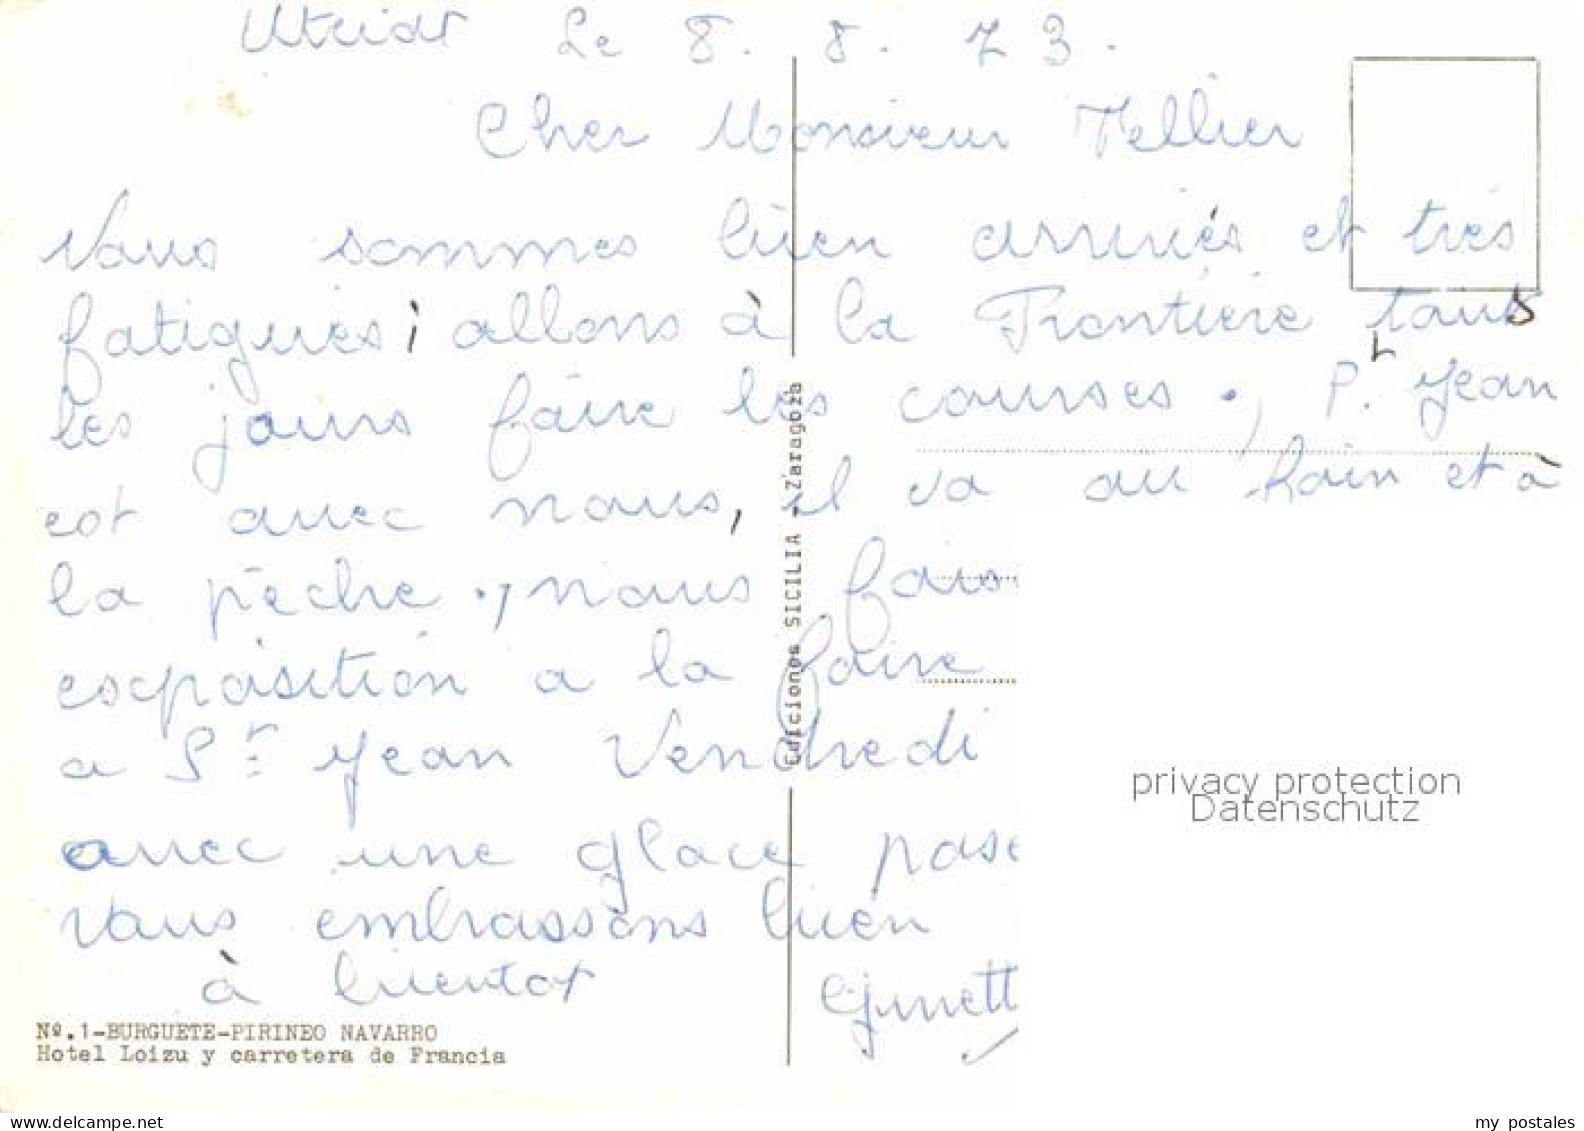 Le 8. 8. 73.
Cher Monsieur Tellier
Nous sommes bien arrivés et très
fatigués; allons à la Frontière tous
les jours faire les courses., P. Jean
est avec nous, il va au bain et à
la pêche., nous fais
exposition a la foire
a St Jean Vendredi
avec une glace
vous embrassons bien
à bientot
Nº.1-BURGUETE-PIRINEO NAVARRO
Hotel Loizu y carretera de Francia
Ediciones SICILIA - Zaragoza
privacy protection
Datenschutz
www.delcampe.net
my postales